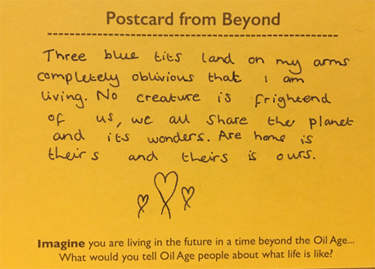 Postcard from Beyond
Three blue tits land on my arms
completely oblivious that I am
living. No creature is frightend
of us, we all share the planet
and its wonders. Are home is
theirs and theirs is ours.
Imagine you are living in the future in a time beyond the Oil Age...
What would you tell Oil Age people about what life is like?